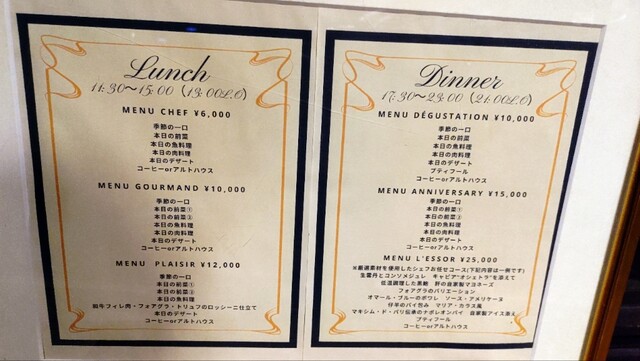 Lunch
11:30～15:00 (13:00L.O)
MENU CHEF ¥6,000
季節の一口
本日の前菜
本日の魚料理
本日の肉料理
本日のデザート
コーヒーorアルトハウス
MENU GOURMAND ¥10,000
季節の一口
本日の前菜①
本日の前菜②
本日の魚料理
本日の肉料理
本日のデザート
コーヒーorアルトハウス
MENU PLAISIR ¥12,000
季節の一口
本日の前菜①
本日の前菜②
本日の魚料理
和牛フィレ肉・フォアグラ・トリュフのロッシーニ仕立て
本日のデザート
コーヒーorアルトハウス
Dinner
17:30～23:00 (21:00L.O)
MENU DÉGUSTATION ¥10,000
季節の一口
本日の前菜
本日の魚料理
本日の肉料理
本日のデザート
プティフール
コーヒーorアルトハウス
MENU ANNIVERSARY ¥15,000
季節の一口
本日の前菜①
本日の前菜②
本日の魚料理
本日の肉料理
本日のデザート
コーヒーorアルトハウス
MENU L'ESSOR ¥25,000
※厳選素材を使用したシェフお任せコース(下記内容は一例です)
生雲丹とコンソメジュレ キャビア"オシェトラ"を添えて
低温調理した黒鮑 肝の自家製マヨネーズ
フォアグラのバリエーション
オマール・ブルーのポワレ ソース・アメリケーヌ
仔羊のパイ包み マリア・カラス風
マキシム・ド・パリ伝承のナポレオンパイ 自家製アイス添え
プティフール
コーヒーorアルトハウス